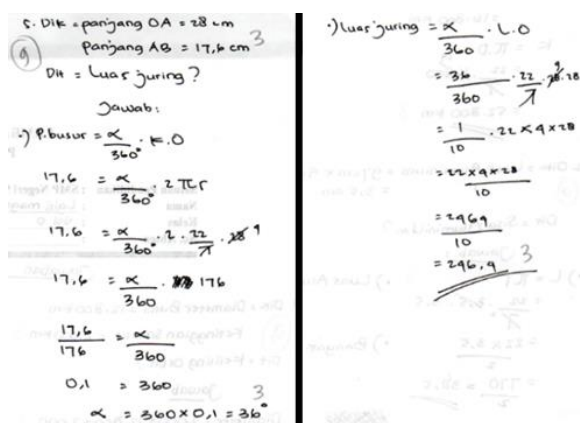 5. Dik = panjang OA = 28 cm
panjang AB = 17,6 cm 3
9
Dit = Luas juring ?
Jawab:
•) P.busur = α/360° . K.O
17,6 = α/360° . 2πr
17,6 = α/360° . 2 . 22/7 . 28 4
17,6 = α/360 . 176
17,6/176 = α/360
0,1 = 360
3
α = 360 x 0,1 = 36°
•) Luas juring = α/360 . L.O
= 36/360 . 22/7 . 28 . 28 4
= 1/10 . 22 x 4 x 28
= 22 x 4 x 28/10
= 2464/10
= 246,4 3